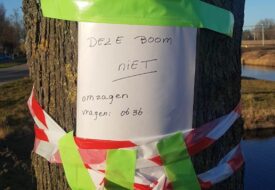 DEZE BOOM
NIET
omzagen
vragen: 06 36